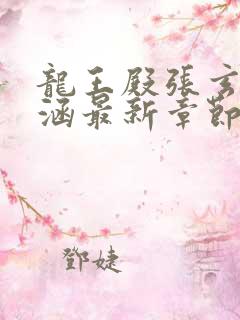 龍王殿張玄
涵最新章節
鄧婕